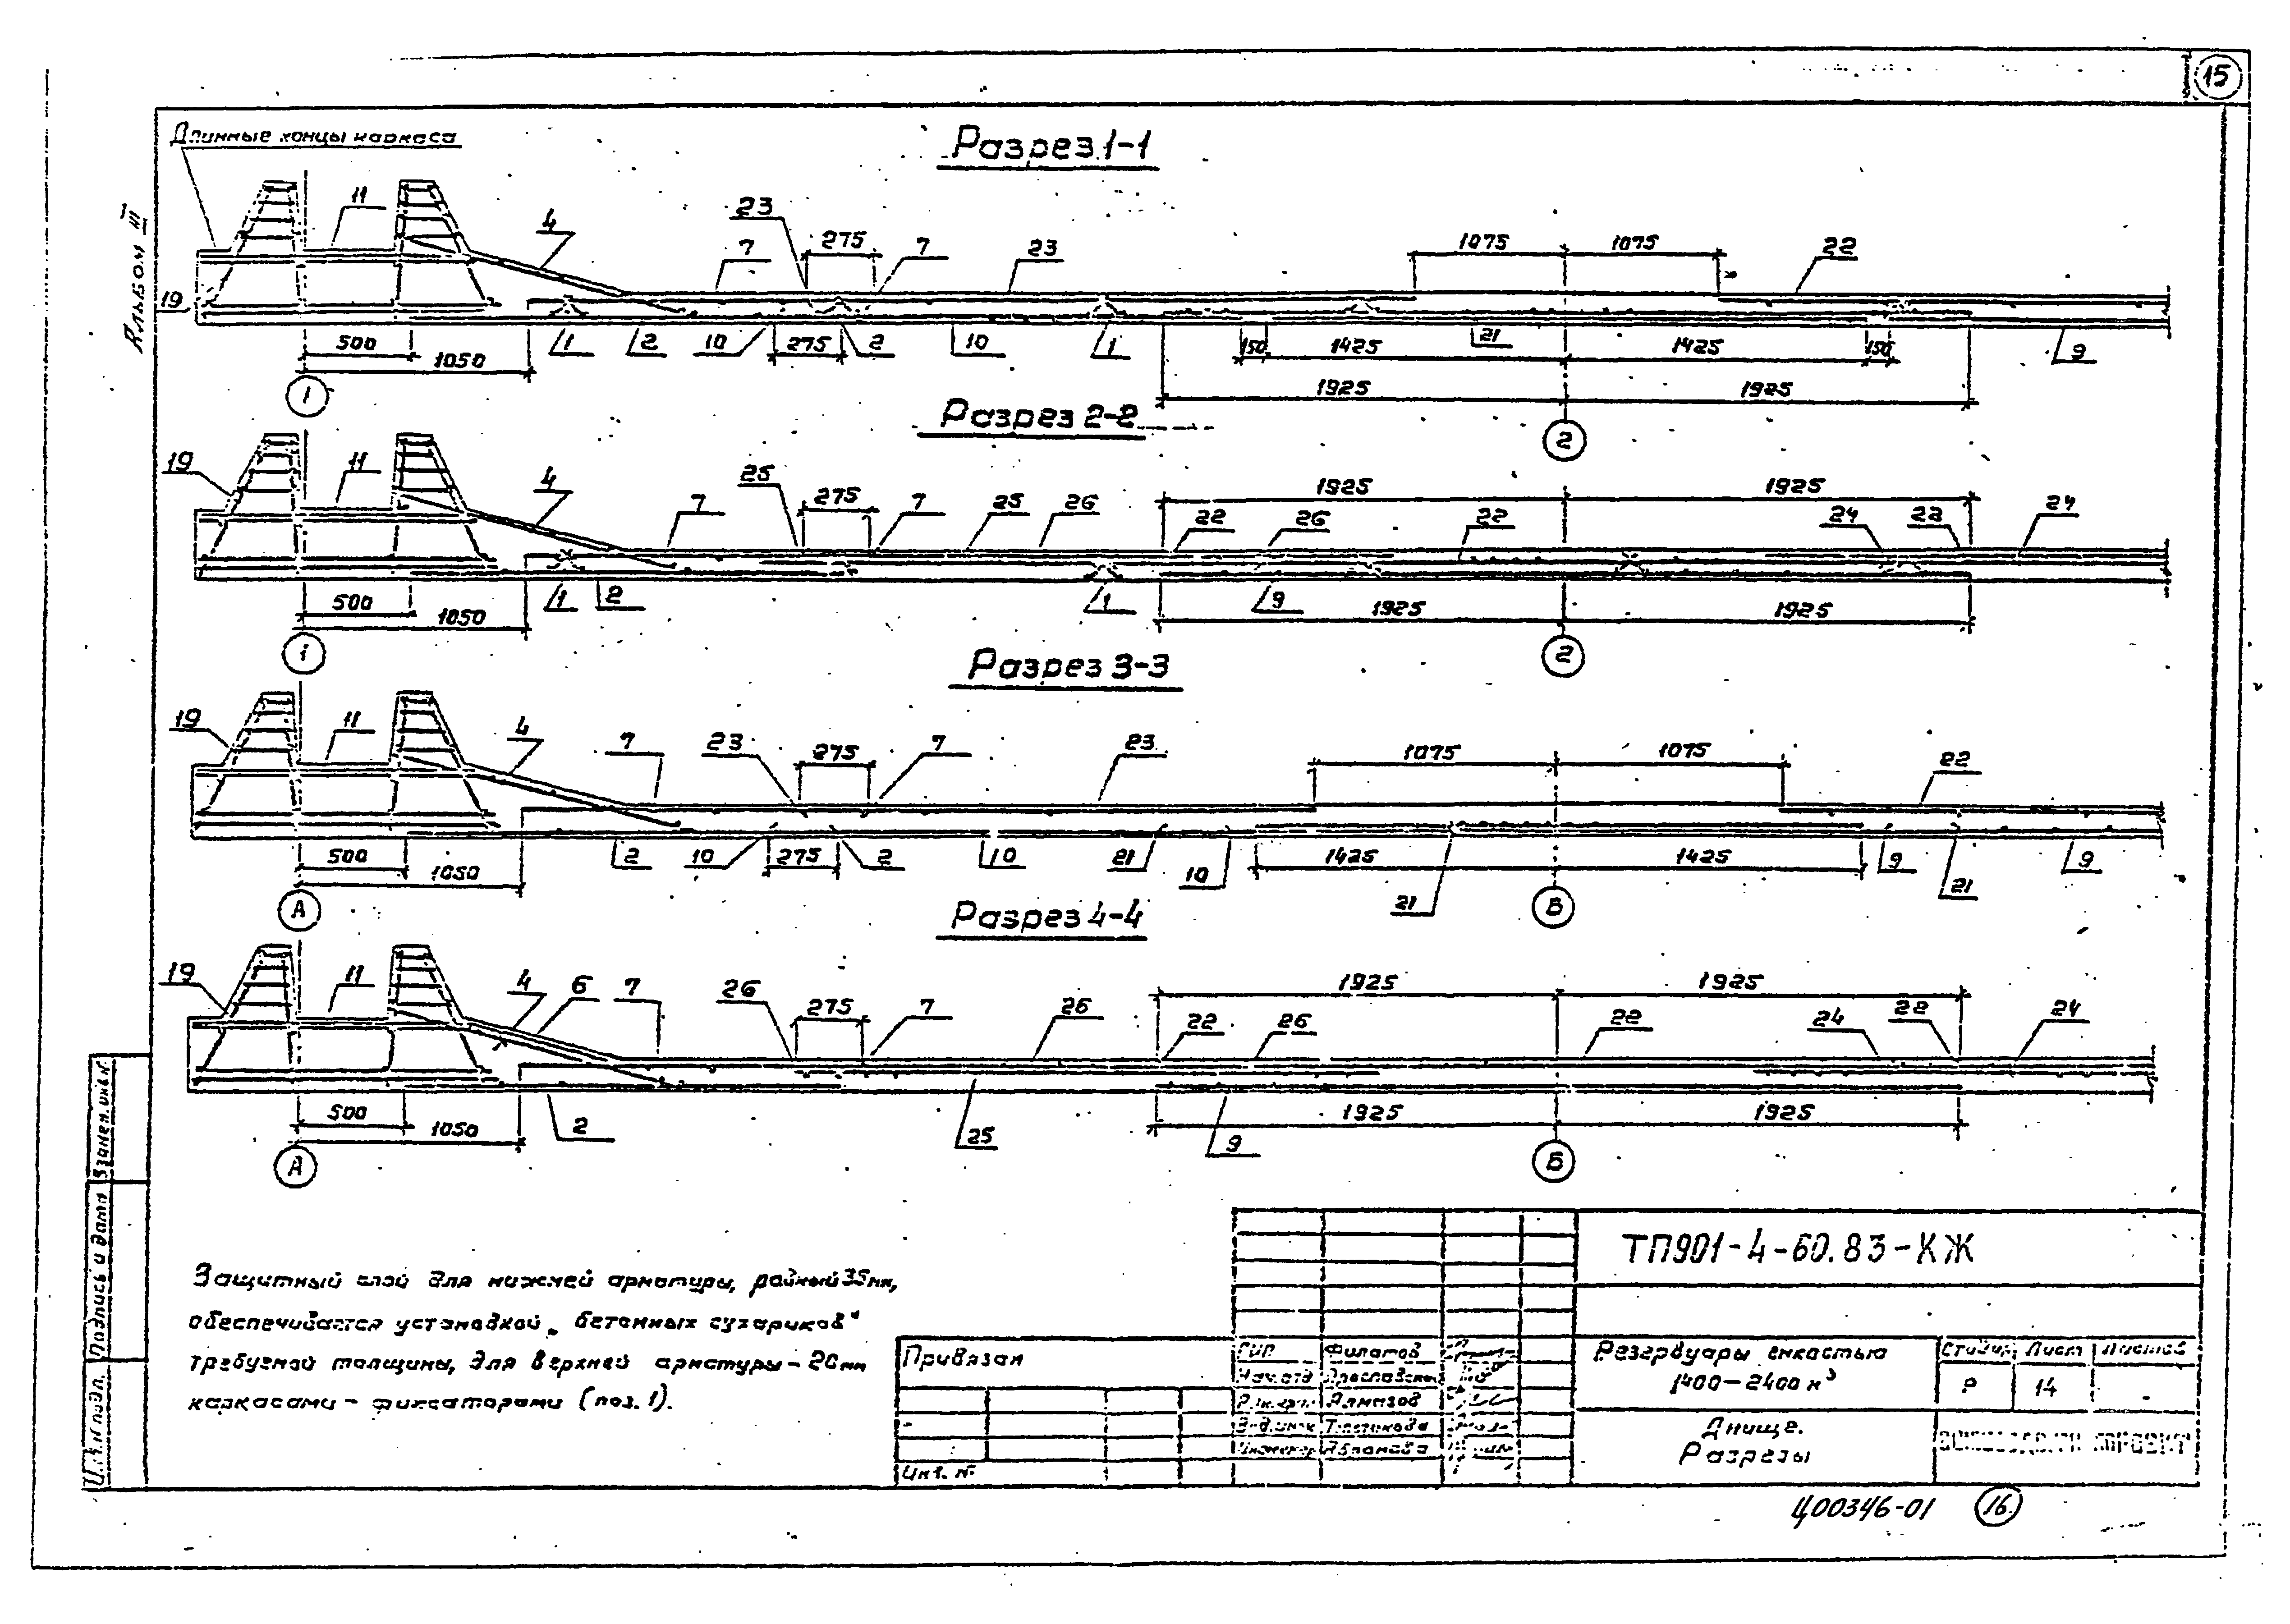 15
Альбом III
Длинные концы каркаса
Разрез 1-1
11
4
23
7
275
7
23
1075
1075
22
19
500
1050
1
2
10
275
2
10
1
150
1425
21
1425
150
9
1925
1925
1
2
Разрез 2-2
19
11
4
7
25
275
7
25
26
1925
1925
22
26
22
24
22
24
500
1050
1
2
1
9
1925
1925
1
2
Разрез 3-3
19
11
4
7
23
275
7
23
1075
1075
22
500
1050
2
10
275
2
10
21
10
1425
21
1425
9
21
9
А
Б
Разрез 4-4
19
11
4
6
7
26
275
7
26
1925
1925
22
26
22
24
22
24
500
1050
2
25
9
1925
1925
А
Б
Защитный слой для нижней арматуры, равный 35мм,
обеспечивается установкой „бетонных сухариков"
требуемой толщины, для верхней арматуры - 20мм
каркасами - фиксаторами (поз. 1).
Взамен. инв. №
Подпись и дата
Инв. № подл.
Привязан
Инв. №
ГИП Филатов
Нач. отд
Алмазов
Инженер Абрамова
ТП901-4-60.83-КЖ
Резервуары емкостью
1400-2400 м³
Стадия Лист Листов
Р 14 -
Днище.
Разрезы
Ц00346-01 16